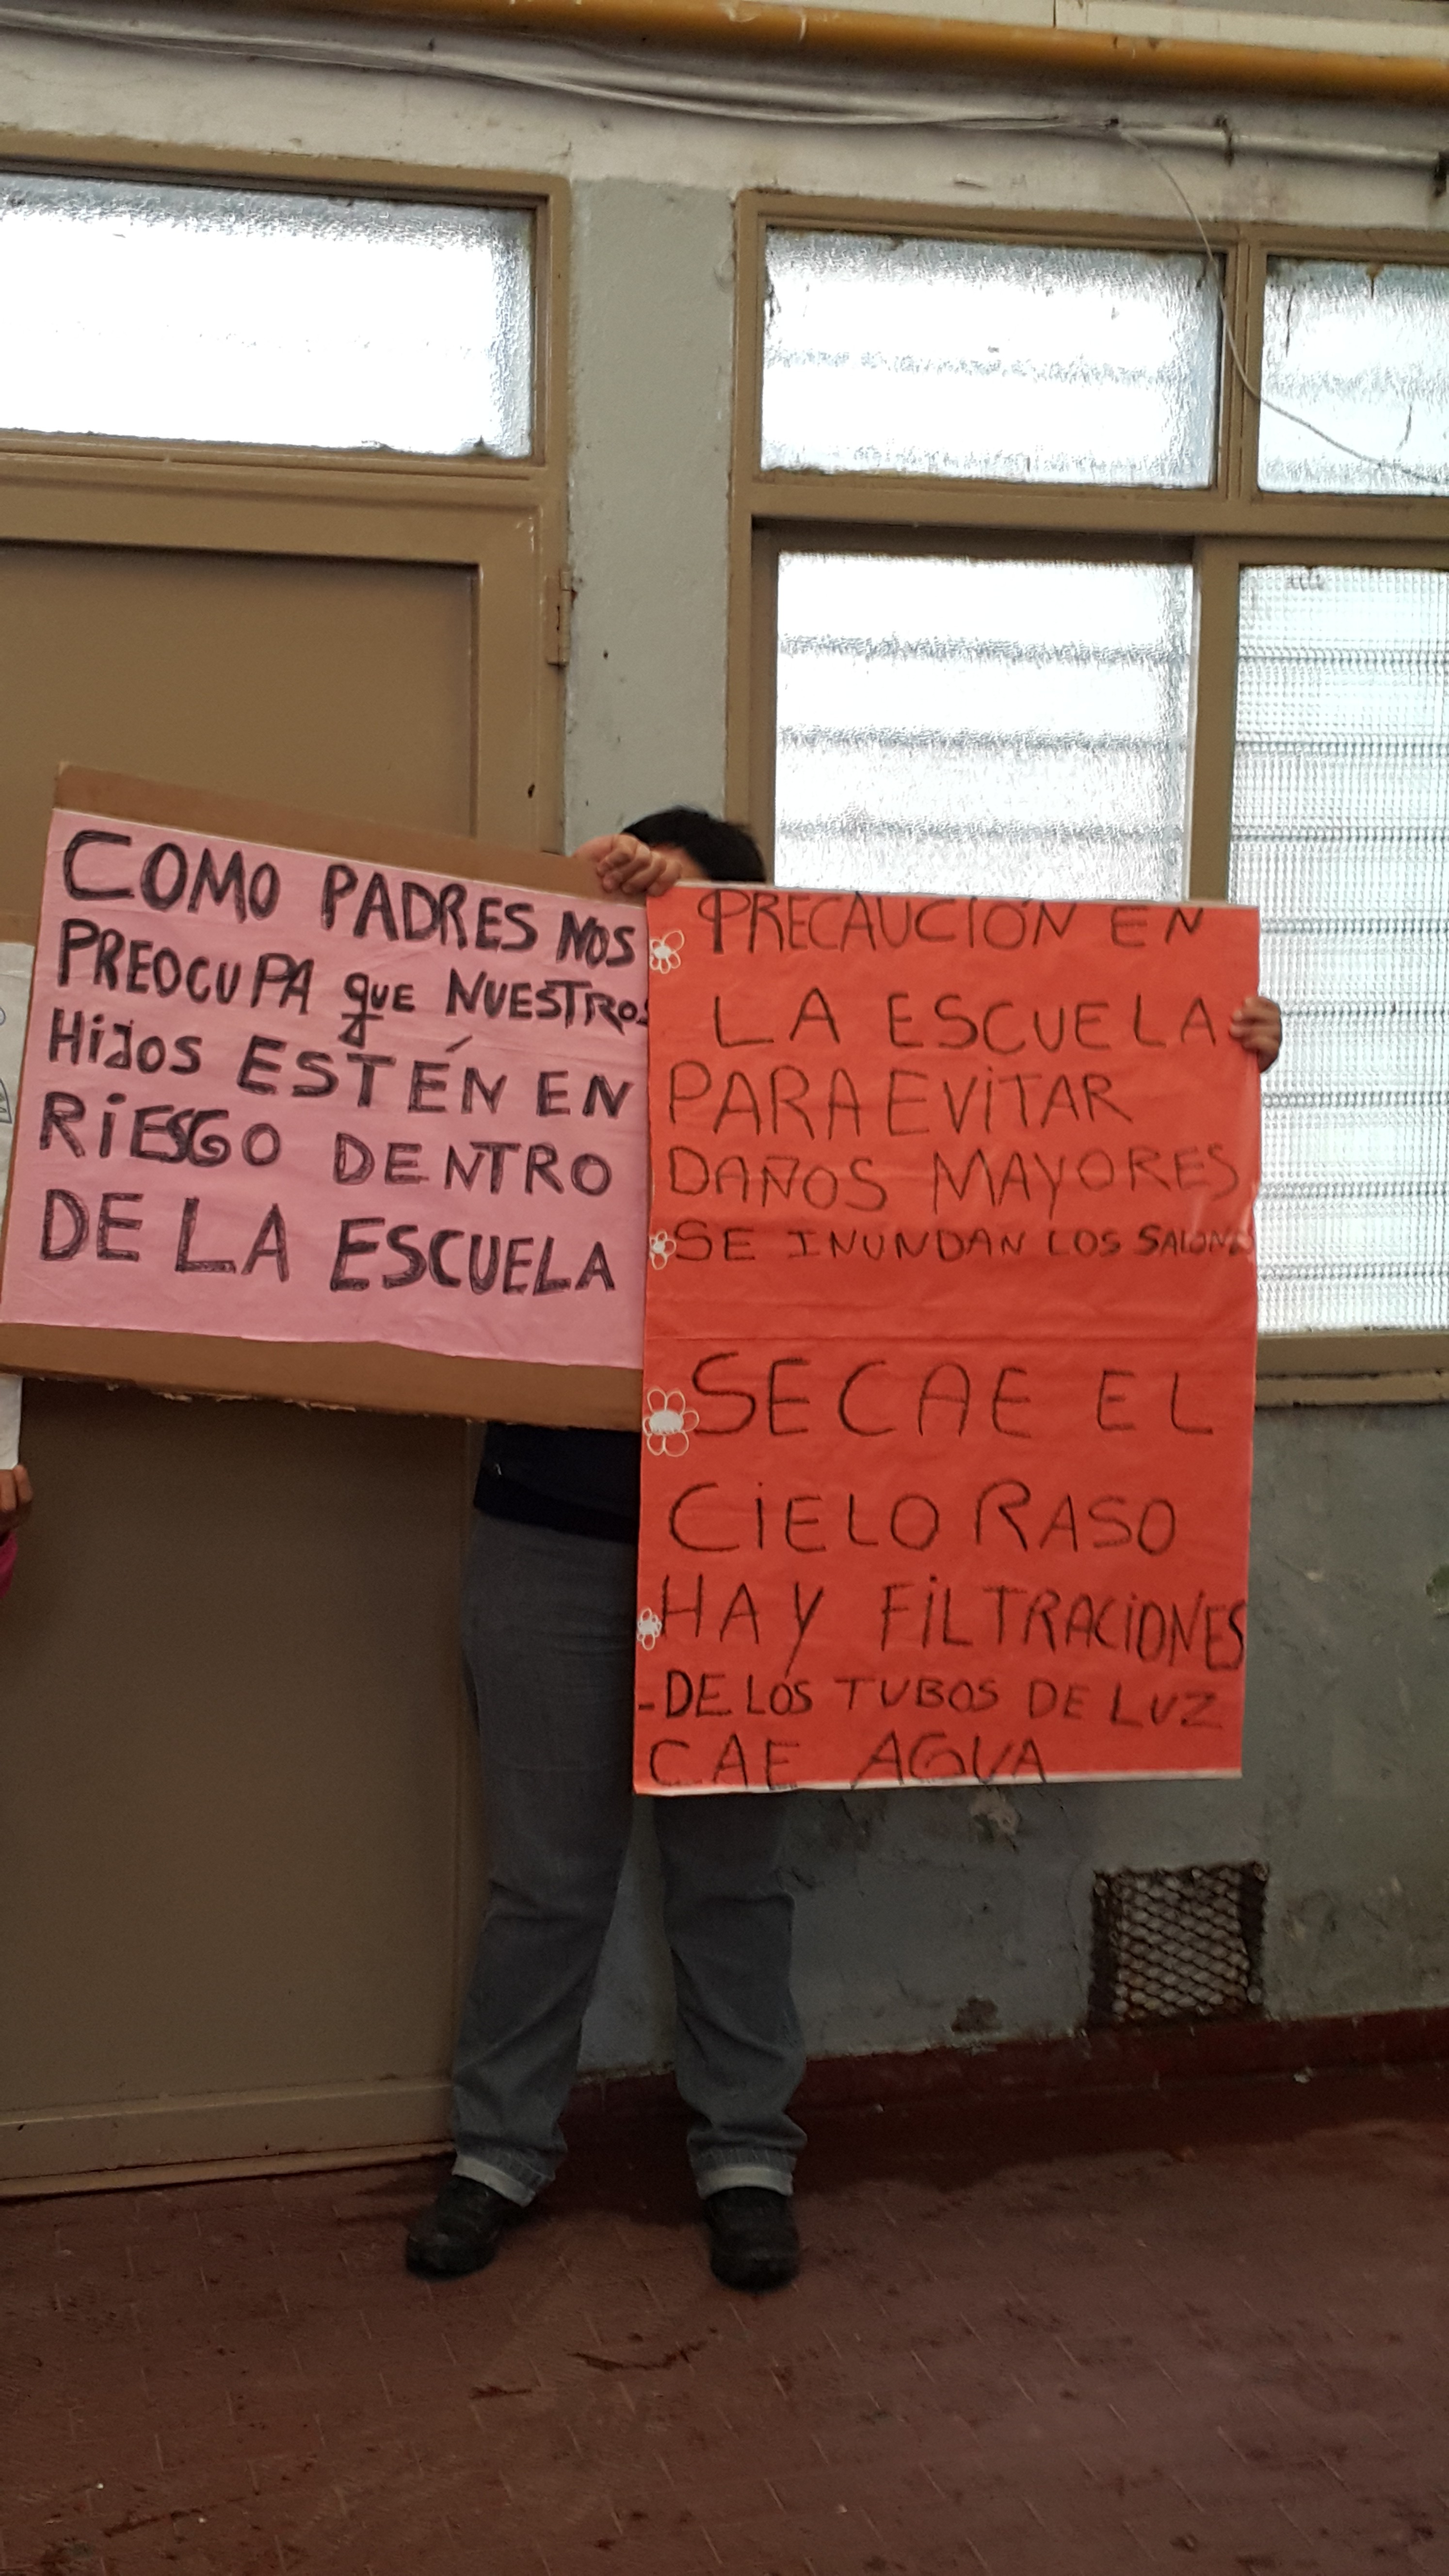 COMO PADRES NOS
PREOCUPA que NUESTROS
HiJOS ESTÉN EN
RiESGO DENTRO
DE LA ESCUELA
PRECAUCIÓN EN
LA ESCUELA
PARA EViTAR
DAÑOS MAYORES
SE INUNDAN LOS SALONES
SE CAE EL
CiELO RASO
HAY FiLTRACiONES
-DE LOS TUBOS DE LUZ
CAE AGUA